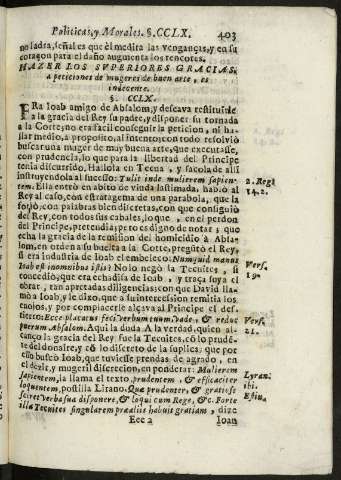 Politicas, y Morales. §. CCLX. 403
no ladra, señal es que èl medita las venganças, y en su
coraçon para el daño augmenta los rencores.
HAZER LOS SVPERIORES GRACIAS,
a peticiones de mugeres de buen arte, es
indecente.
§. CCLX.
ERa Ioab amigo de Absalom, y deseava restituirle
a la gracia del Rey su padre, y disponer su tornada
a la Corte; no era facil conseguir la peticion, ni ha-
llar medio, a proposito, al intento; con todo resolvió
buscar una mager de muy buena arte, que executasse,
con prudencia, lo que para la libertad del Principe
tenia discurrido. Hallola en Tecua, y sacola de alli
instruyendola al sucesso: Tulit inde mulierem sapien-
tem. Ella entrò en abito de viuda lastimada, habló al 2. Reg.
Rey al caso, con estratagema de una parabola, que la 14. 2.
forjò, con palabras bien discretas, con que consiguiò
del Rey, con todos sus cabales, lo que, en el perdon
del Principe, pretendia; pero es digno de notar; que
echa la gracia de la remission del homicidio à Absa-
lom, en orden a su buelta a la Corte, preguntó el Rey,
si era industria de Ioab el embeleco: Numquid manus Vers.
Ioab est inomnibus istis? No lo negò la Tecuites, si 19.
concediò; que era echadiza de Ioab, y traça suya el
obrar, tan apretadas diligencias: con que David lla-
mò a Ioab, y le dixo, que a su intercession remitia los
enojos, y por complacerle alçava al Principe el des-
tierro: Ecce placatus feci verbum tuum, vade, & reduc Vers.
puerum Absalom. Aqui la duda A la verdad, quien al- 21.
cançò la gracia del Rey fue la Tecuites, cõ lo pruden-
te del donaire, y cõ lo discreto de la suplica; que por
esso buscò Ioab, que tuviesse prendas de agrado, en
el dezir, y mugeril discrecion, en ponderar: Mulierem
sapientem, la llama el texto, prudentem, & efficaciter Lyran.
loquentem, postilla Lirano. Qua prudenter, & gratiose ibi.
sciret verba sua disponere, & loqui cum Rege, &c. Forte Estiu.
illa Tecuites singularem præ aliis habuit gratiam, dize
Eee 2 Ioan